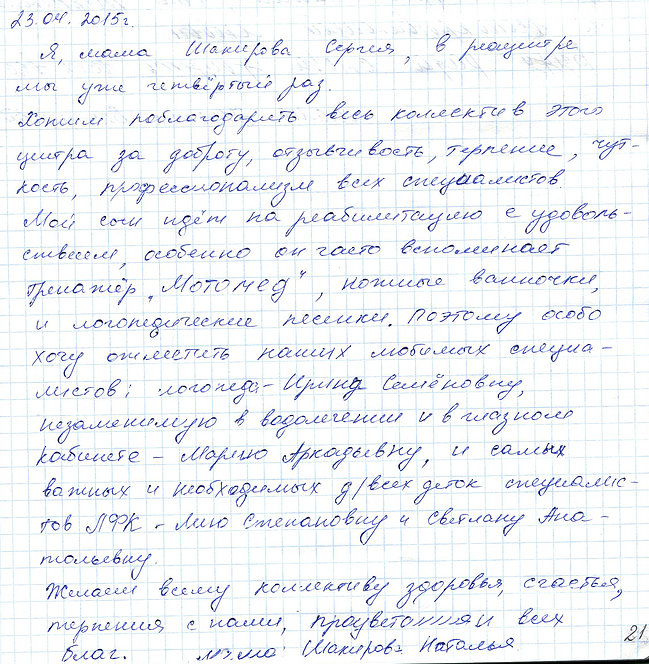 23.04.2015г.
Я, мама Шакирова Сергея, в реацентре
мы уже четвёртый раз.
Хотим поблагодарить весь коллектив этого
центра за доброту, отзывчивость, терпение, чут-
кость, профессионализм всех специалистов.
Мой сын идёт на реабилитацию с удоволь-
ствием, особенно он часто вспоминает
тренажёр „Мотомед", ножные ванночки,
и логопедические песенки. Поэтому особо
хочу отметить наших любимых специа-
листов: логопеда - Ирину Семёновну,
незаменимую в водолечении и в глазном
кабинете - Марию Аркадьевну, и самых
важных и необходимых д/всех деток специалис-
тов ЛФК - Лию Степановну и Светлану Ана-
тольевну.
Желаем всему коллективу здоровья, счастья,
терпения с нами, процветания и всех
благ. мама Шакирова Наталья
21